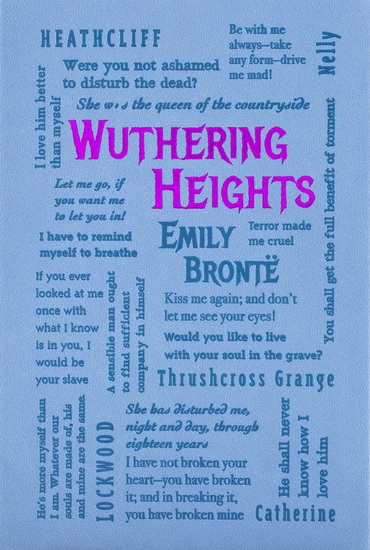 HEATHCLIFF
Be with me
always—take
any form—drive
me mad!
Nelly
Were you not ashamed
to disturb the dead?
I love him better
than myself
She was the queen of the countryside
WUTHERING
HEIGHTS
Let me go, if
you want me
to let you in!
EMILY
BRONTË
Terror made
me cruel
You shall get the full benefit of torment
I have to remind
myself to breathe
If you ever
looked at me
once with
what I know
is in you, I
would be
your slave
A sensible man ought
to find sufficient
company in himself
Kiss me again; and don't
let me see your eyes!
Would you like to live
with your soul in the grave?
Thrushcross Grange
He's more myself than
I am. Whatever our
souls are made of, his
and mine are the same.
LOCKWOOD
She has disturbed me,
night and day, through
eighteen years
I have not broken your
heart—you have broken
it; and in breaking it,
you have broken mine
He shall never
know how I
love him
Catherine